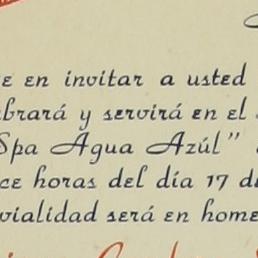 e en invitar a usted
brará y servirá en el
Spa Agua Azúl"
ce horas del día 17 d
vialidad será en home